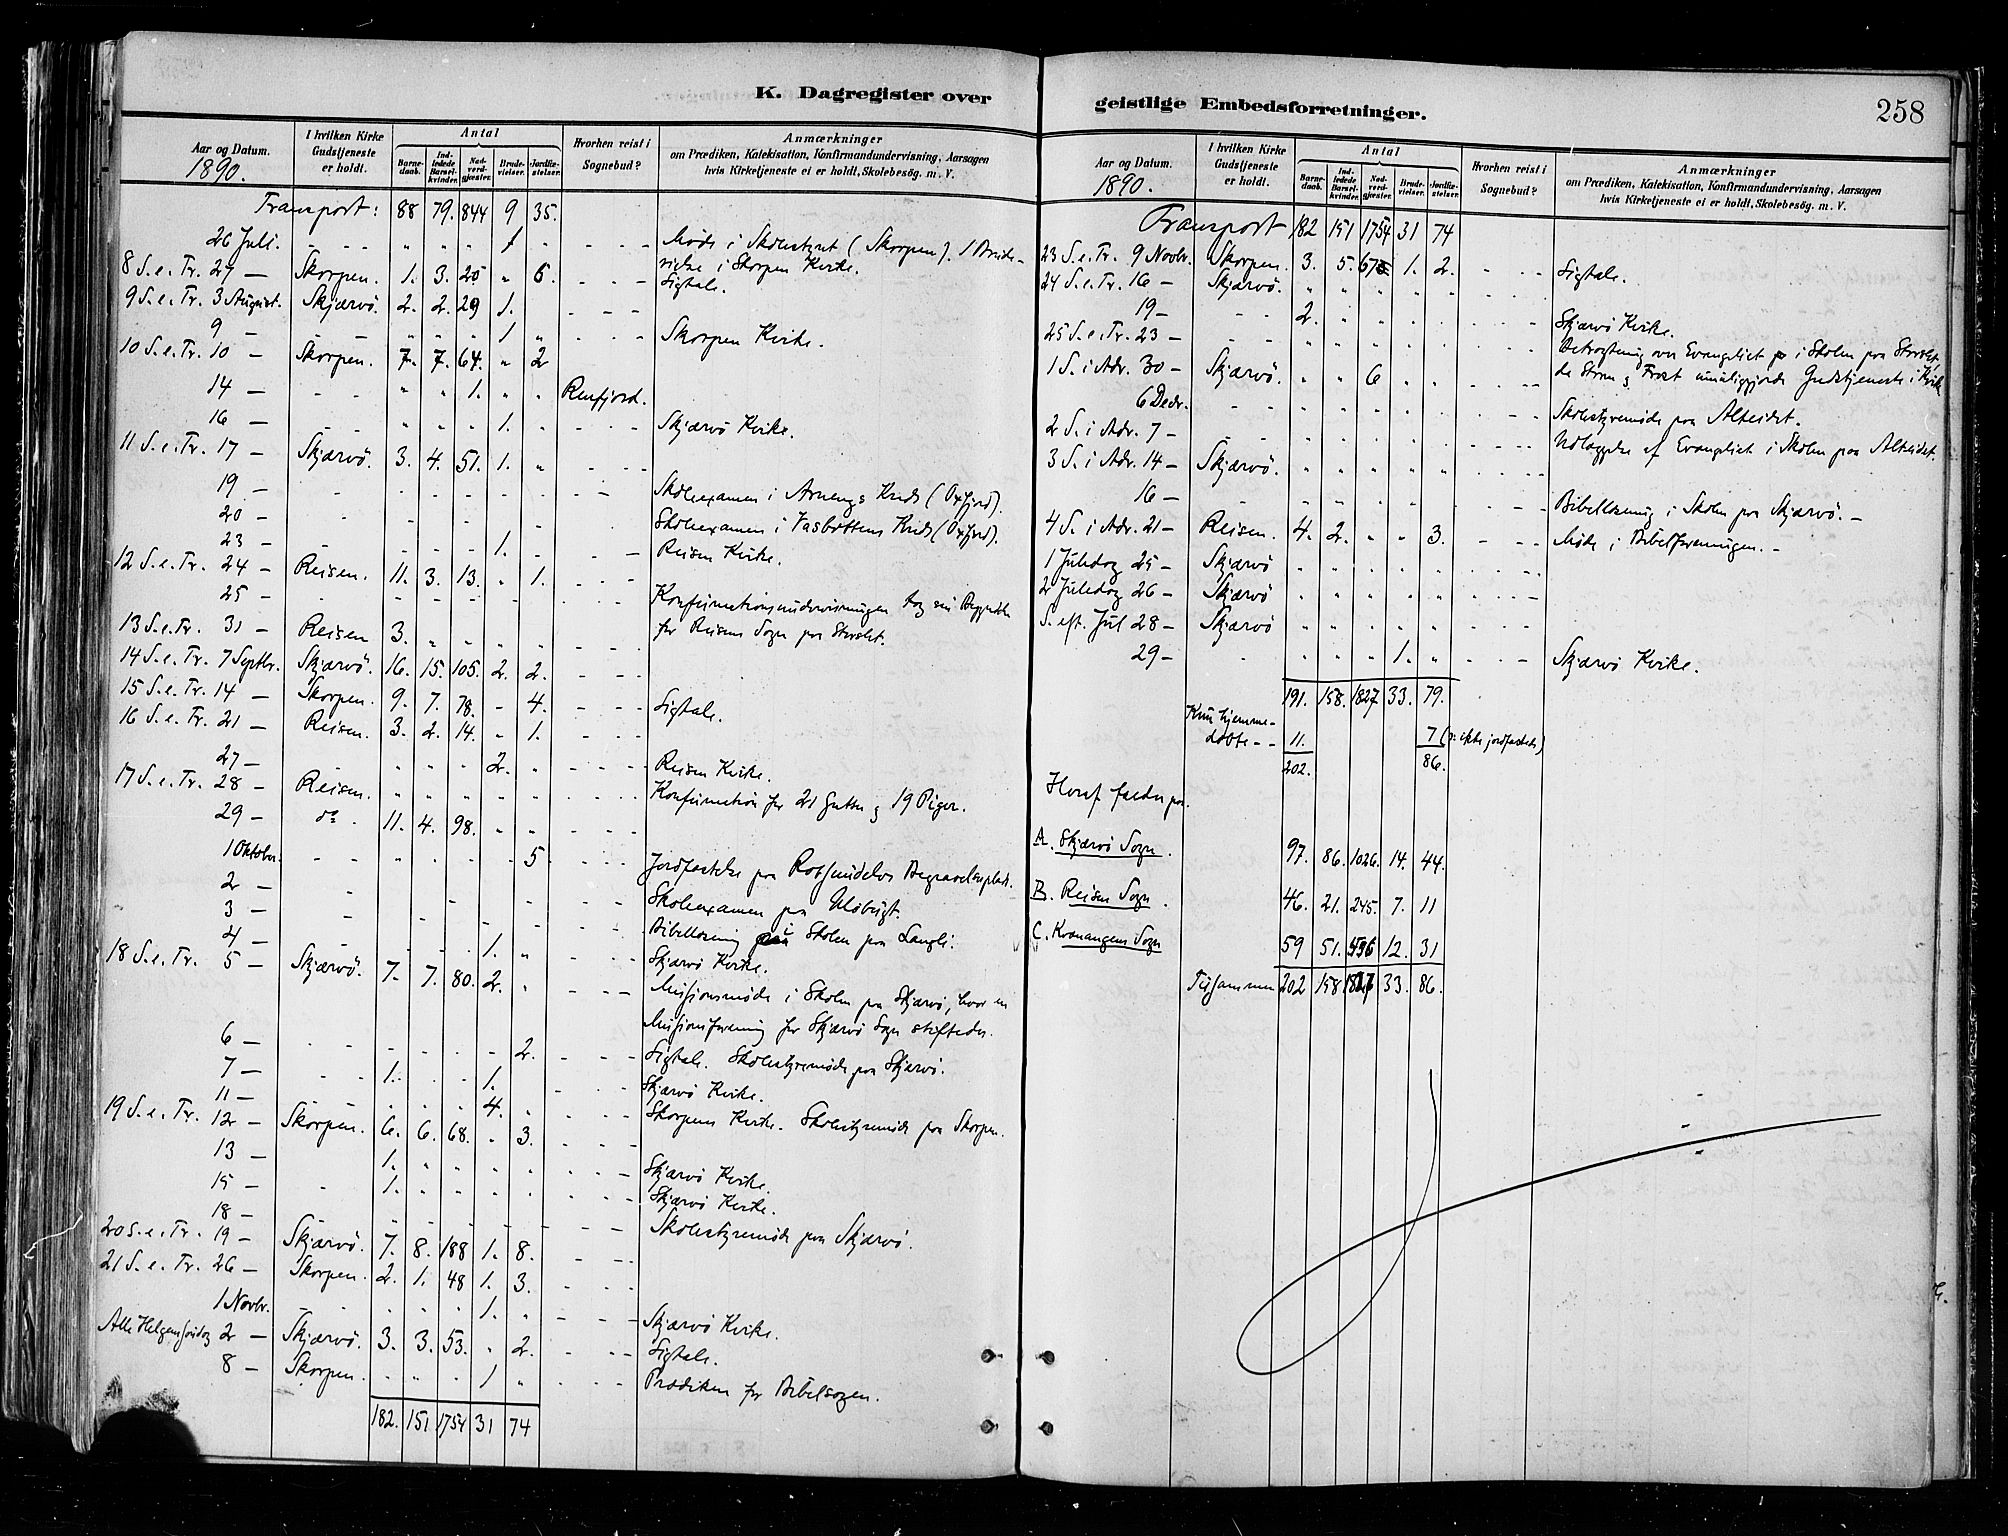 K. Dagregister over
Aar og Datum. I hvilken Kirke Gudstjeneste er holdt. Antal Barnedaab. Indledede Barselkvinder. Nadverdgjæster. Brudevielser. Jordfæstelser. Hvorhen reist i Sognebud? Anmærkninger om Prædiken, Katekisation, Konfirmandundervisning, Aarsagen hvis Kirketjeneste ei er holdt, Skolebesøg. m. V.
1890.
Transport: 88 79. 844 9 35.
26 Juli. - - - " " " 1 " - - - Møde i Skolestyret (Skorpen). 1 Brude-
8 S.e.Tr. 27 — Skorpen. 1. 3. 20 " 6. - - - vielse i Skorpen Kirke. Ligtale.
9 S.e.Tr. 3 August. Skjærvö. 2. 2. 29 1. - - -
9 — - - " " " 1 " - - - Skorpen Kirke.
10 S.e.Tr. 10 — Skorpen. 7. 7. 64. " 2
14 — - - - " " 1. " " Rensfjord.
16 — - - " " " 1. " - - - Skjærvö Kirke.
11 S.e.Tr. 17 — Skjærvö. 3. 4. 51. 1. " - - -
19 — - - - - - - - - - - Skoleexamen i Arnengs Kreds (Oxfjord).
20 — - - - - - - - Skoleexamen i Vasbottens Kreds (Oxfjord).
23 — - - - - - 1. - - - Reisen Kirke.
12 S.e.Tr. 24 — Reisen. 11. 3. 13. " 1. - - -
25 — - - - - - - - - - Konfirmationsundervisningen tog sin Begyndelse
13 S.e.Tr. 31 — Reisen 3. " " " " - - - for Reisens Sogn paa Storslet.
14 S.e.Tr. 7 Septbr. Skjærvö. 16. 15. 105. 2. 2. - - -
15 S.e.Tr. 14 — Skorpen. 9. 7. 78. - 4. - - - Ligtale.
16 S.e.Tr. 21 — Reisen. 3. 2. 14. " 1. - - -
27 — - - - - 2. " - - - Reisen Kirke.
17 S.e.Tr. 28 — Reisen. " " " " " - - - Konfirmation for 21 Gutter og 19 Piger.
29 — do. 11. 4. 98. " " - - -
1 Oktober. - - " - - - 5 - - - Jordfæstelse paa Rotsundelvs Begravelsesplads.
2 — - - - - - - - - Skoleexamen paa Uløbugt.
3 — - - - - - - - - Bibellæsning i Skolen paa
4 — - - - - 1. " - - - Skjærvö Kirke.
18 S.e.Tr. 5 — Skjærvö. 7. 7. 80. 2. " - - - Missionsmøde i Skolen paa Skjærvö, hvor en
Missionsforening for Skjærvö Sogn stiftedes.
6 — - - - - - - 2. - - - Ligtale. Skolestyremøde paa Skjærvö.
7 — - - 1. - - 1. - - - Skjærvö Kirke.
11 — - - - - - 4. " - - - Skorpens Kirke. Skolestyremøde paa Skorpen.
19 S.e.Tr. 12 — Skorpen. 6. 6. 68. " 3. - - -
13 — - 1. " " " " - - - Skjærvö Kirke.
15 — - 1. " " " " - - - Skjærvö Kirke.
18 — - - - - - - - - Skolestyremøde paa Skjærvö.
20 S.e.Tr. 19 — Skjærvö. 7. 8. 188 1. 8. - - -
21 S.e.Tr. 26 — Skorpen. 2. 1. 48 1. 3. - - -
1 Novbr. - - - - - 1. " - - - Skjærvö Kirke.
Alle Helgens Søndag 2 — Skjærvö. 3. 3. 53. " 2. - - - Ligtale.
8 — Skorpen. " " " 1 " - - - Prædiken for Bibelsagen.
182. 151 1754 31 74
geistlige Embedsforretninger.
258
Aar og Datum. I hvilken Kirke Gudstjeneste er holdt. Antal Barnedaab. Indledede Barselkvinder. Nadverdgjæster. Brudevielser. Jordfæstelser. Hvorhen reist i Sognebud? Anmærkninger om Prædiken, Katekisation, Konfirmandundervisning, Aarsagen hvis Kirketjeneste ei er holdt, Skolebesøg. m. V.
1890.
Transport 182 151 1754 31 74
23 S.e.Tr. 9 Novbr. Skorpen. 3. 5. 67 1. 2. - - - Ligtale.
24 S.e.Tr. 16 — Skjærvö. " " " " " - - -
19 — - - 2. " " " " - - - Skjærvö Kirke.
25 S.e.Tr. 23 — - - " " " " " - - - Betragtning over Evangeliet i Skolen paa Storslet,
1 S. i Adv. 30 — Skjærvö. " " 6 " " - - - da Storm og Frost umuliggjorde Gudstjeneste i Kirken.
6 Decbr. - - " " " " " - - - Skolestyremøde paa Alteidet.
2 S. i Adv. 7 — - " " " " " - - - Udlæggelse af Evangeliet i Skolen paa Alteidet.
3 S. i Adv. 14 — Skjærvö. " " " " " - - -
16 — - " " " " " - - - Bibellæsning i Skolen paa Skjærvö. —
4 S. i Adv. 21 — Reisen. 4. 2. " " 3. - - - Møde i Bibelforeningen. —
1 Juledag 25 — Skjærvö " " " " " - - -
2 Juledag 26 — Skjærvö " " " " " - - -
S. eft. Jul 28 — Skjærvö " " " " "
29 — - " " " 1. " - - - Skjærvö Kirke.
191. 158. 1827 33. 79.
Kun hjemme-
døbte - - 11. 7 (o: ikke jordfæstede)
202. 86.
Heraf falder paa
A. Skjærvö Sogn. 97. 86. 1026. 14. 44.
B. Reisen Sogn. 46. 21. 245. 7. 11
C. Kvænangens Sogn 59 51. 556 12. 31
Tilsammen 202 158 1827 33. 86.